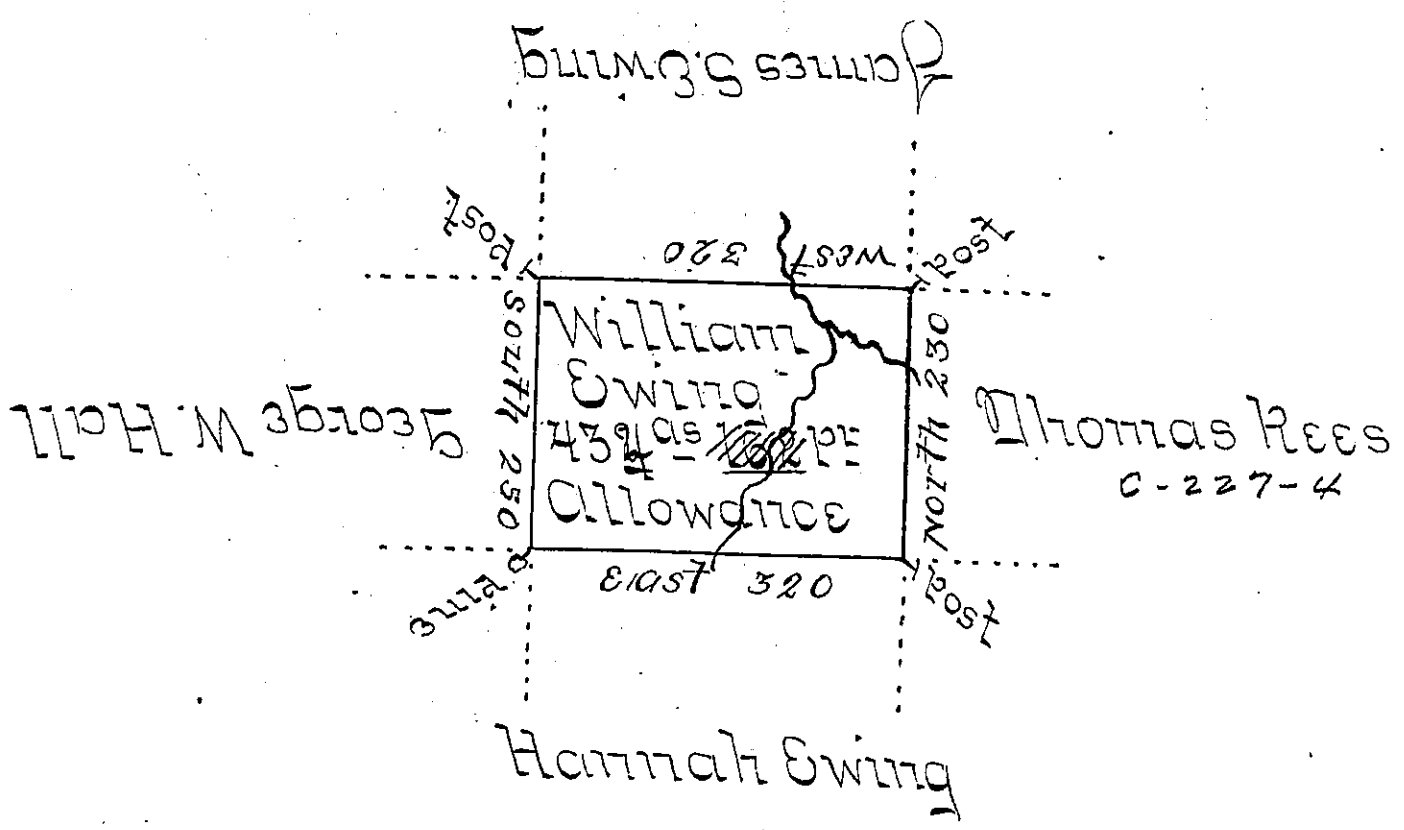 James S. Ewing
Post
West 320
Post
South 250
William
Ewing
as pr
Allowance
North 230
George W. Hall
Thomas Rees
C-227-4
Pine
East 320
Post
Hannah Ewing